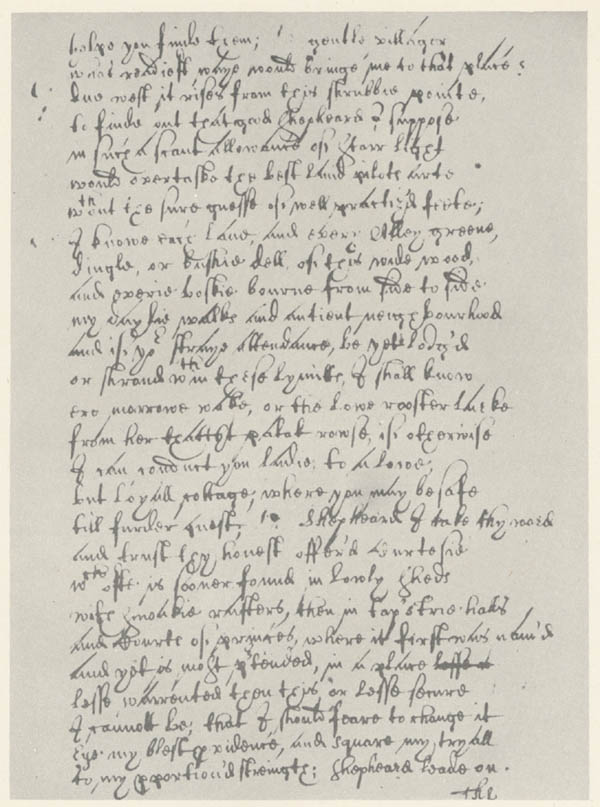 helpe you finde them; la: gentle villager
what readiest waye would bringe me to that place?
due west it rises from this shrubbie pointe,
to finde out that good shepheard I suppose
in such a scant allowance of starr light
would overtaske the best land pilots arte
wthout the sure guesse of well practiz'd feete;
I knowe each lane, and every Alley greene,
dingle, or bushie dell, of this wide wood,
and everie boskie bourne from side to side
my daylie walks and antient neighbourhood
and if yor straye attendance, be yet lodg'd
or shroud wthin these lymitts, I shall know
ere morrowe wake, or the lowe rooster larke
from her thatcht palat rowse, if otherwise
I can conduct you ladie, to a lowe,
but loyall cottage, where you may be safe
till furder quest; la: Shepheard I take thy word
and trust thy honest offer'd Curtesie
wch ofte is sooner found in lowly sheds
with smoakie rafters, then in tap'strie halls
and Courts of princes, where it first was nam'd
and yet is most ptended, in a place
lesse warrented then this or lesse secure
I cannott be, that I should feare to change it
Eye me blest pvidence, and square my tryall
to my pportion'd strength; Shepheard leade on.
The